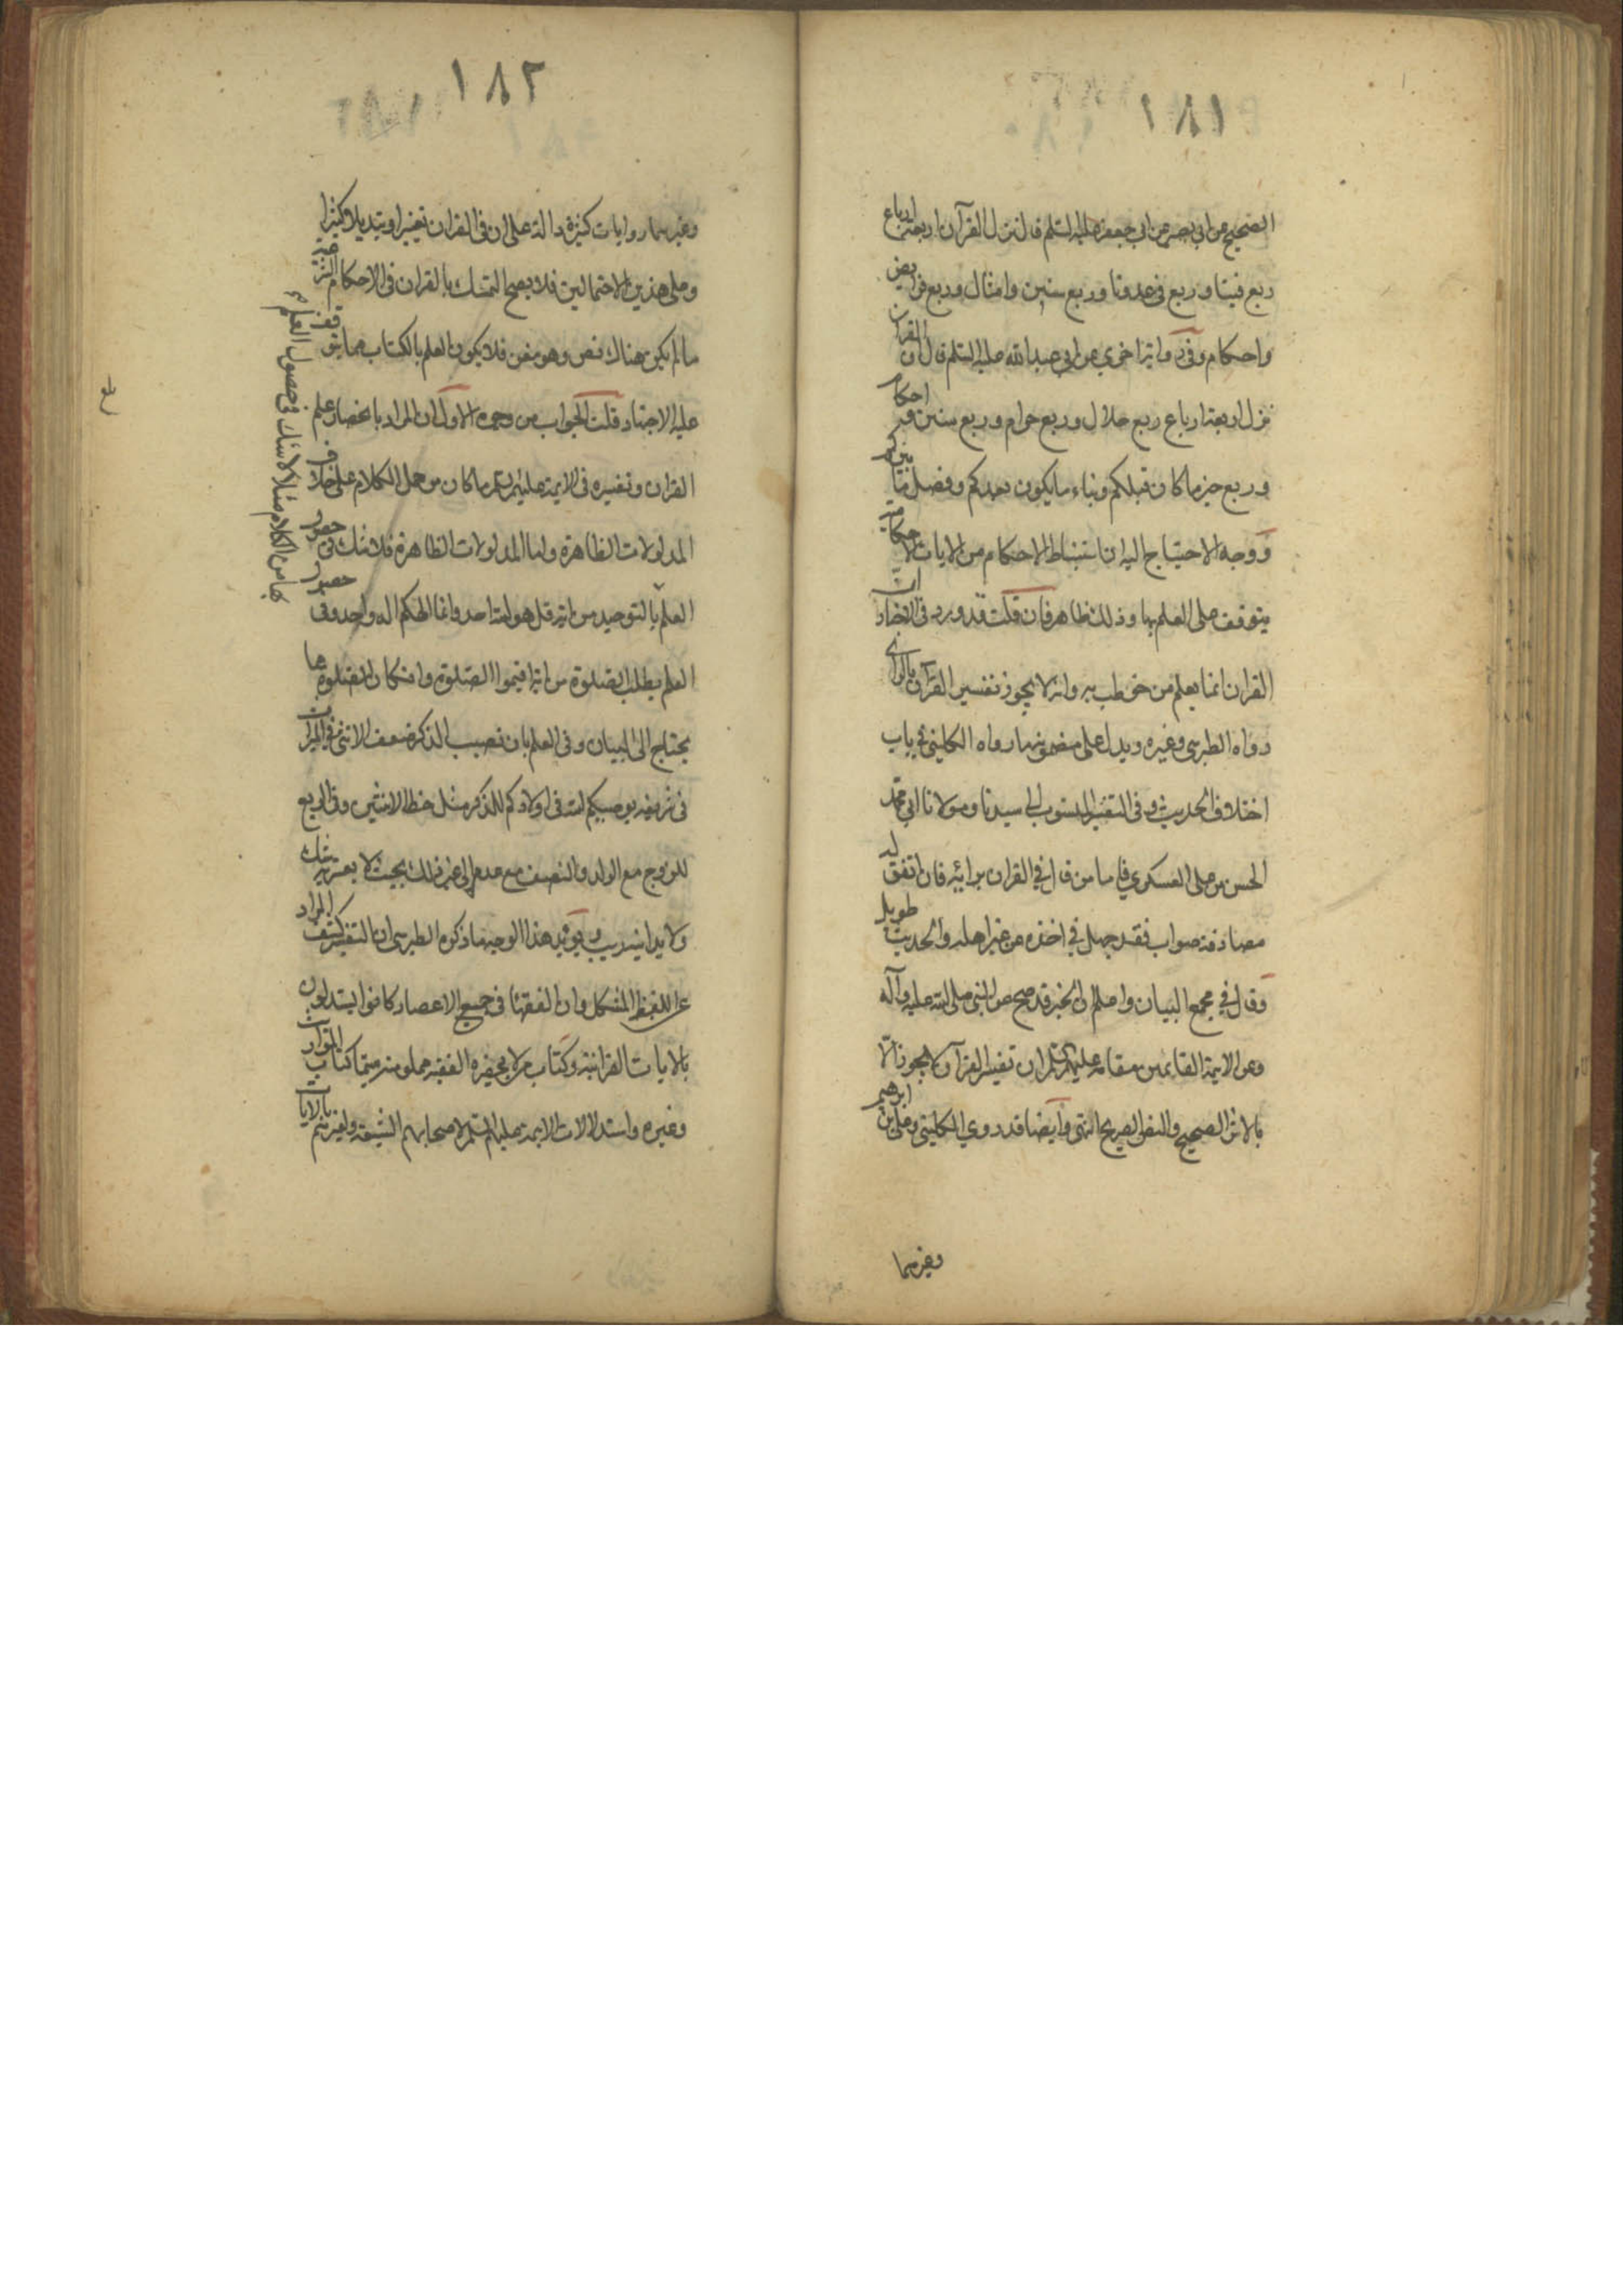 ١٨١
الصحيح عن ابي بصير عن ابي جعفر عليه السلم قال نزل القرآن اربعة ارباع
ربع فينا وربع في عدونا وربع سنن وامثال وربع فرايض
واحكام وفي رواية اخرى عن ابي عبد الله عليه السلم قال ان القران
نزل اربعة ارباع ربع حلال وربع حرام وربع سنن و احكام
وربع خبر ما كان قبلكم ونباء ما يكون بعدكم وفصل ما بينكم
ووجه الاحتياج اليه ان استنباط الاحكام من الايات الاحكامية
يتوقف على العلم بها وذلك ظاهر فان قلت قد ورد في الاخبار ان
القران انما يعلم من خوطب به وانه لا يجوز تفسير القرآن بالراى
رواه الطبرسي وغيره ويدل على مضمونها رواه الكليني في باب
اختلاف الحديث و في التفسير المنسوب الى سيدنا ومولانا ابي محمد
الحسن بن علي العسكري فاما من قال في القران برائيه فان اتفق له
مصادفة صواب فقد جهل في اخذه عن غير اهله والحديث طويل
وقال في مجمع البيان واعلم ان الخبر قد صح عن النبي صلى الله عليه وآله
وعن الايمة القايمين مقامه عليهم السلم ان تفسير القرآن لا يجوز الا
بالاثر الصحيح والنص الصريح انتهى وايضا قد روي الكليني وعلي بن ابرهيم
وغيرهما
١٨٢
وغيرهما روايات كثيرة دالة على ان في القران تغييرا وتبديلا كثيرا
وعلى هذين الاحتمالين فلا يصح التمسك بالقران في الاحكام الشرعية
ما لم يكن هناك نص وهو مغن فلا يكون العلم بالكتاب مما يتوقف
عليه الاجتهاد قلت الجواب من وجوه الاول ان المراد بانحصار علم
القران وتفسيره في الايمة عليهم السلم ما كان من حمل الكلام على خلاف
المدلولات الظاهرة واما المدلولات الظاهرة فلا شك في حصول
العلم بالتوحيد من اية قل هو الله احد وانما الهكم اله واحد وفي حصول
العلم بطلب الصلوة من اية اقيموا الصلوة وان كان الصلوة مما
يحتاج الى البيان وفي العلم بان نصيب الذكر ضعف الانثى في الميراث
في شريفة يوصيكم الله في اولادكم للذكر مثل حظ الانثيين وفي الربع
للزوج مع الولد والنصف مع عدمه الى غير ذلك بحيث لا يعتريه شك
ولا يدانيه ريب ويؤيد هذا الوجه ما ذكره الطبرسي ان التفسير كشف المراد
عن اللفظ المشكل وان الفقها في جميع الاعصار كانوا يستدلون
بالايات القرانية وكتاب من لا يحضره الفقيه مملو منه سيما كتاب المواريث
وغيره واستدلالات الايمة عليهم السلم لاصحابهم الشيعة ولغيرهم بالايات